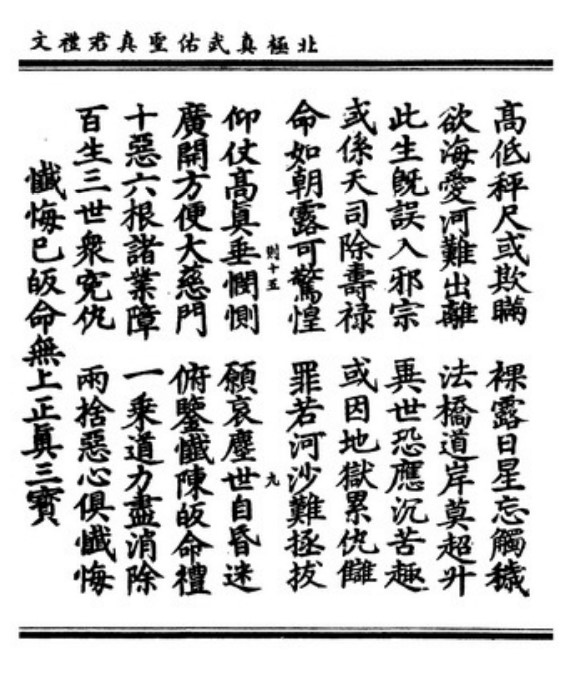 北極真武佑聖真君禮文
高低秤尺或欺瞞　裸露日星忘觸穢
欲海愛河難出離　法橋道岸莫超升
此生旣誤入邪宗　異世恐應沉苦趣
或係天司除壽禄　或因地獄累仇讎
命如朝露可驚惶　罪若河沙難拯拔
則十五　九
仰仗高眞垂憫惻　願哀塵世自昏迷
廣開方便大慈門　俯鑒懺陳皈命禮
十惡六根諸業障　一乘道力盡消除
百生三世衆寃仇　兩捨惡心俱懺悔
懺悔已皈命無上正眞三寳